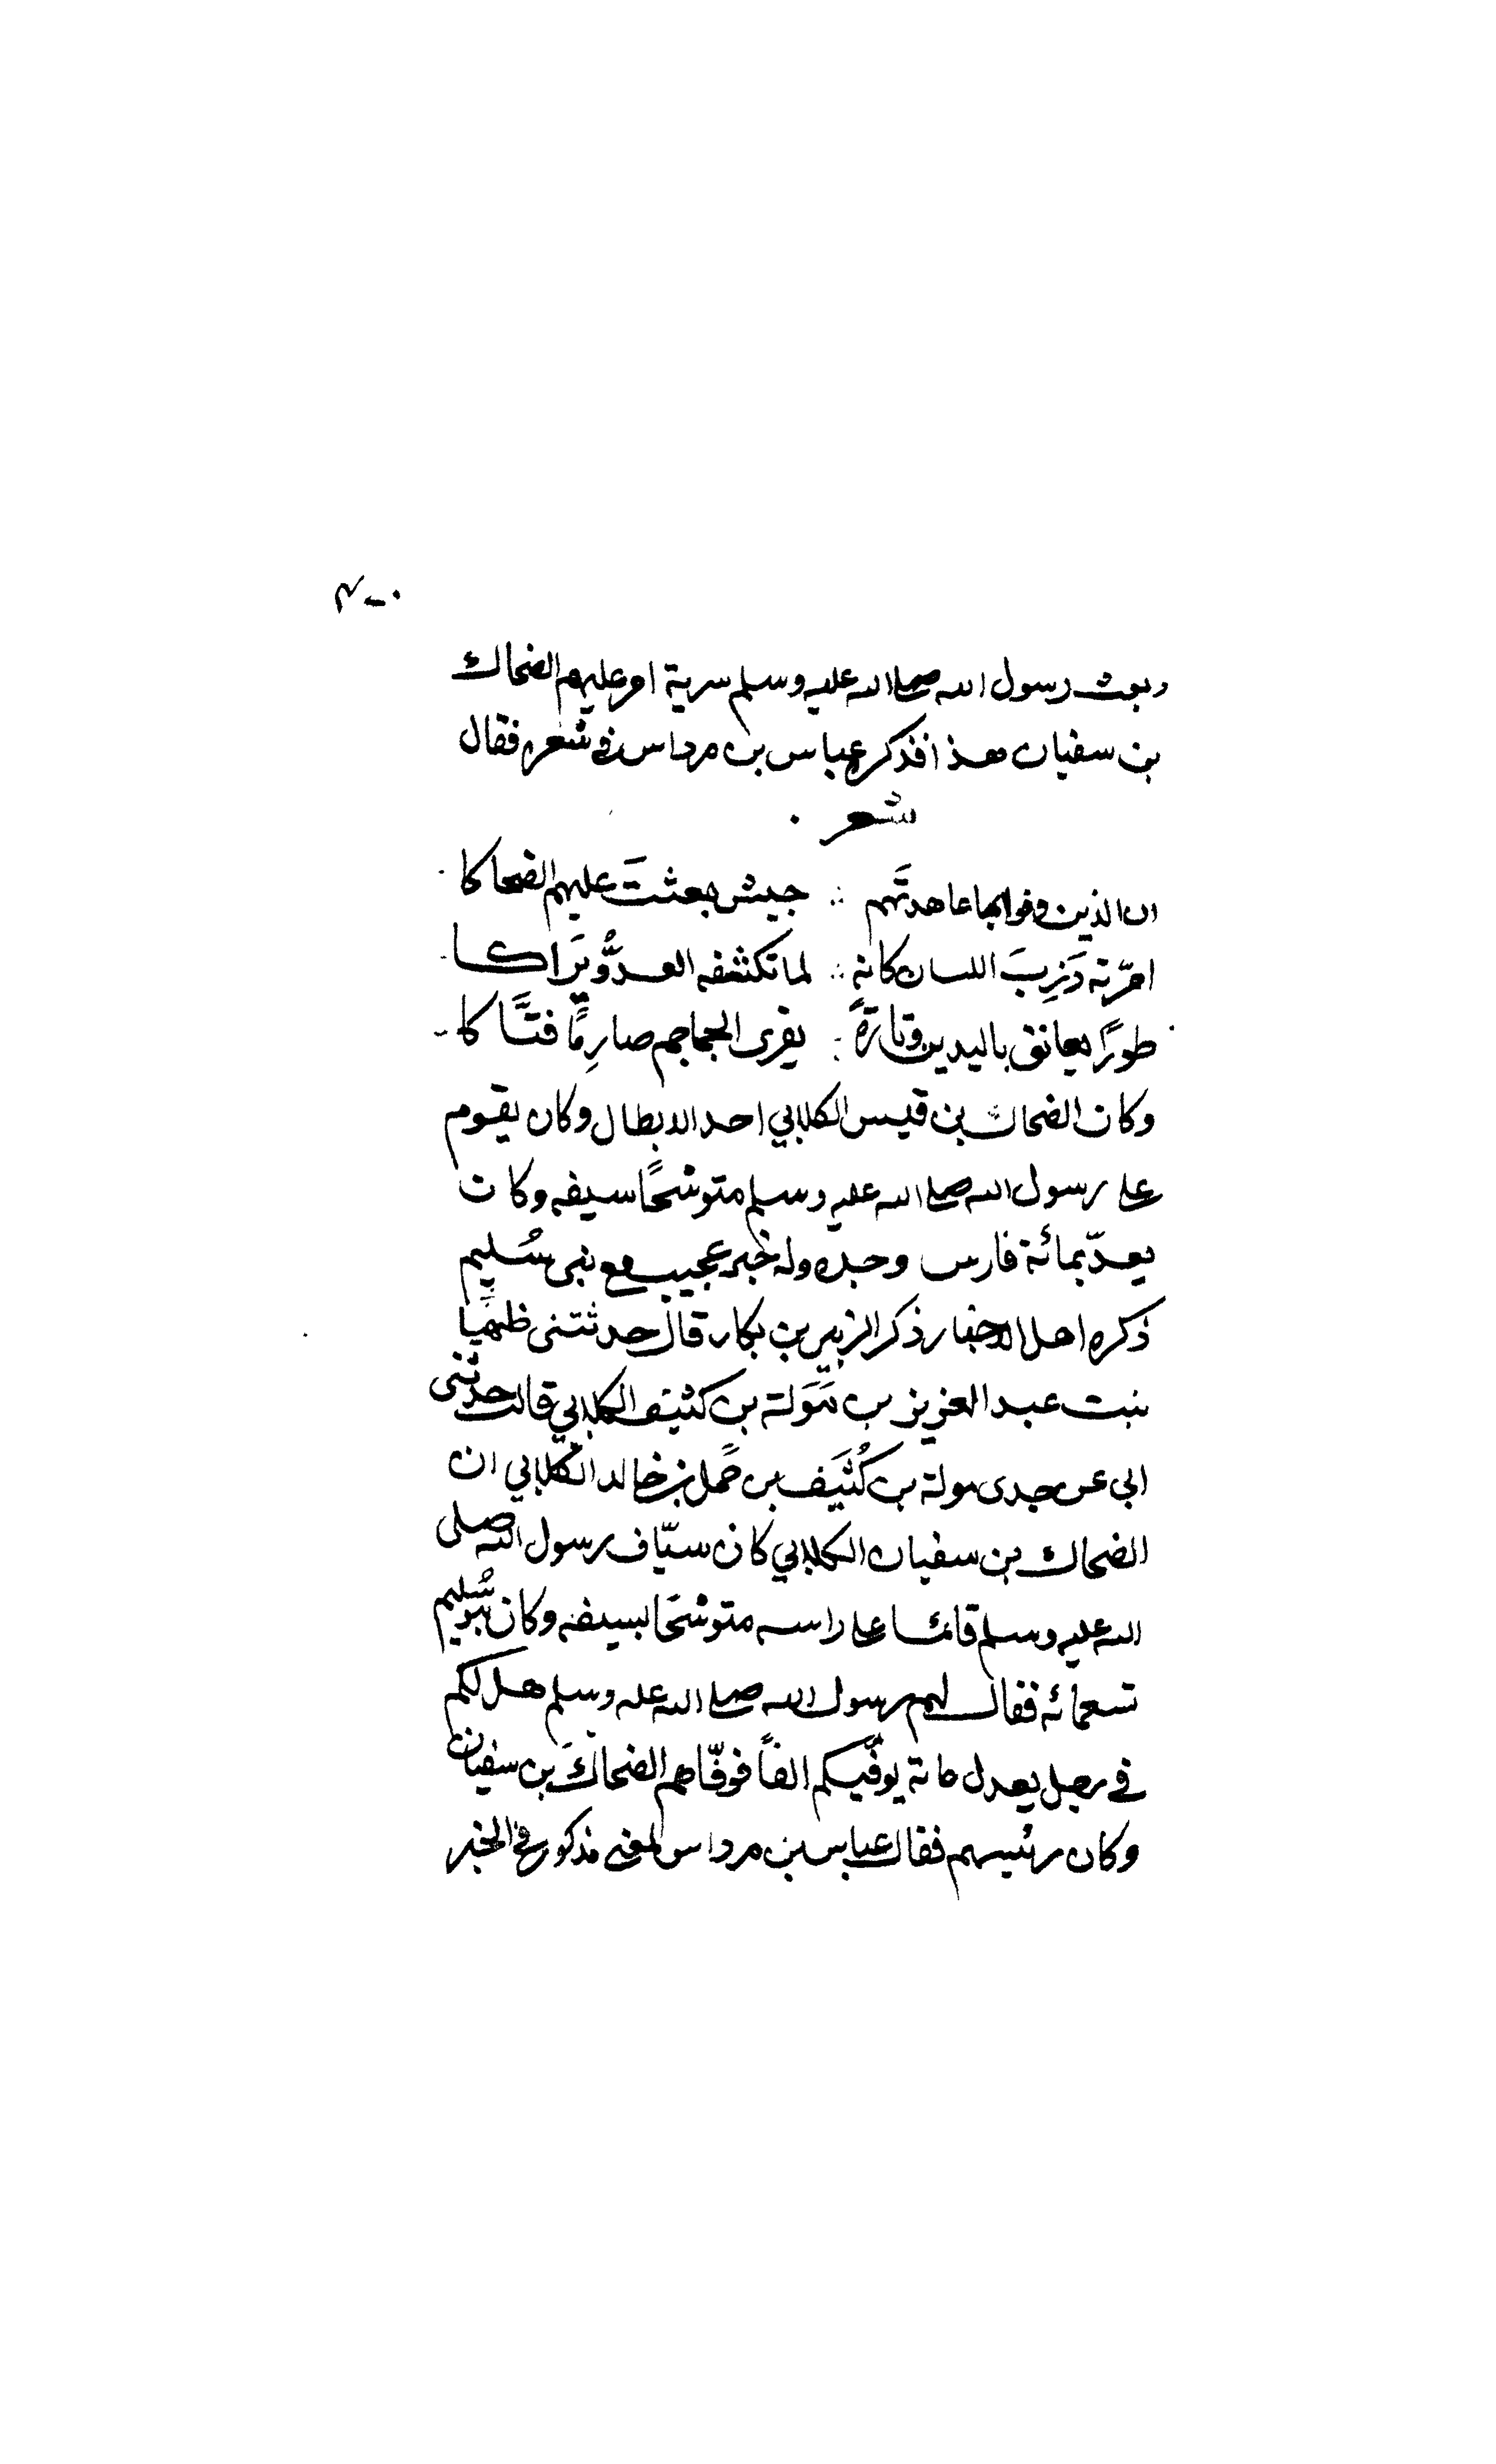 وبعث رسول الله صلى الله عليه وسلم سرية امر عليهم الضحاك
بن سفيان هذا فذكره عباس بن مرداس في شعره فقال
شعر
ان الذين وفوا بما عاهدتَهم ∴ جيش بعثتَ عليهم الضحاكا
امّرته ذَرِبَ اللسان كانه ∴ لما تكشفه العدوُّ يَراكا
طورًا يعانق باليدين وتارةً ∴ يفرى الجماجم صارِمًا فتَّاكا
وكان الضحاك بن قيس الكلابي احد الابطال وكان يقوم
على رسول الله صلى الله عليه وسلم متوشحًا سيفه وكان
يعدّ بمائة فارس وحده وله خبر عجيب مع بنى سُليم
ذكره اهل الاخبار ذكر الزبير بن بكار قال حدثتنى ظميا
بنت عبد العزيز بن مَوَلة بن كثيف الكلابي قالت حدثنى
ابي عن جدى مولة بن كُثَيف بن حمل بن خالد الكلابي ان
الضحاك بن سفيان الكلابي كان سيّاف رسول الله صلى
الله عليه وسلم قائما على راسه متوشحًا بسيفه وكان بنو سُليم
تسعمائه فقال لهم رسول الله صلى الله عليه وسلم هل لكم
في رجل يعدل مائة يوفّيكم الفاً فوفّاهم الضحاكَ بن سفيان
وكان رئيسهم فقال عباس بن مرداس لمعنى مذكور في الخبر